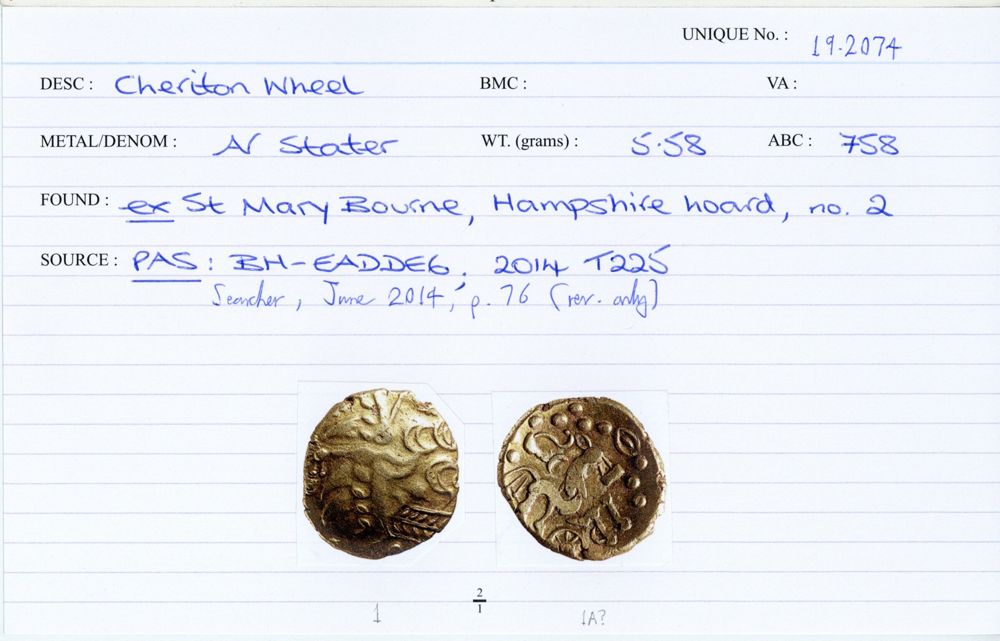 UNIQUE No. : 19.2074
DESC : Cheriton Wheel BMC : VA :
METAL/DENOM : AV Stater WT. (grams) : 5.58 ABC : 758
FOUND : ex St Mary Bourne, Hampshire hoard, no. 2
SOURCE : PAS: BH-EADDE6, 2014 T225
Searcher, June 2014, p. 76 (rev. only)
2
1
1 1A?